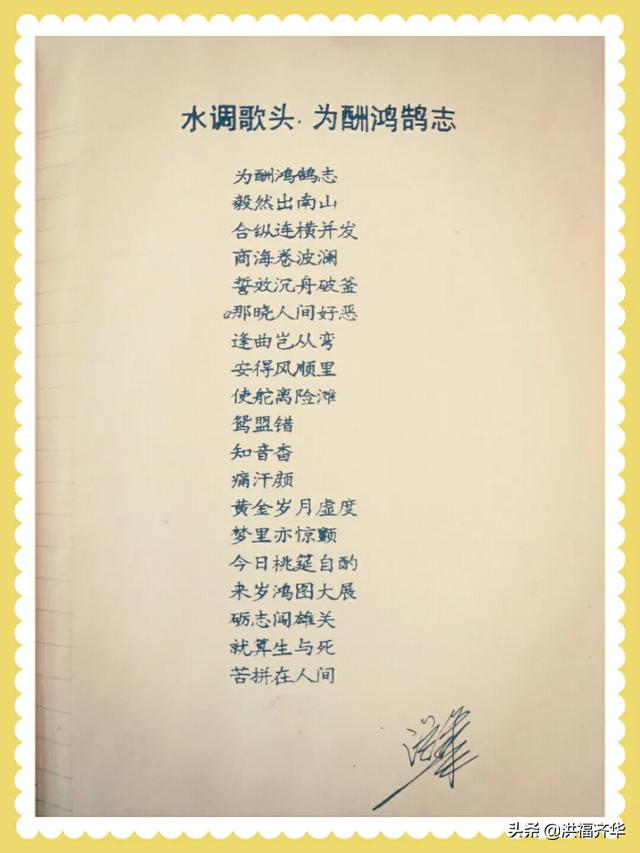 水调歌头·为酬鸿鹄志
为酬鸿鹄志
毅然出南山
合纵连横并发
商海卷波澜
誓效沉舟破釜
那晓人间好恶
逢曲岂从弯
安得风顺里
使舵离险滩
鸳盟错
知音杳
痛汗颜
黄金岁月虚度
梦里亦惊颤
今日桃筵自酌
来岁鸿图大展
砺志闯雄关
就算生与死
苦拼在人间
头条 @洪福齐华